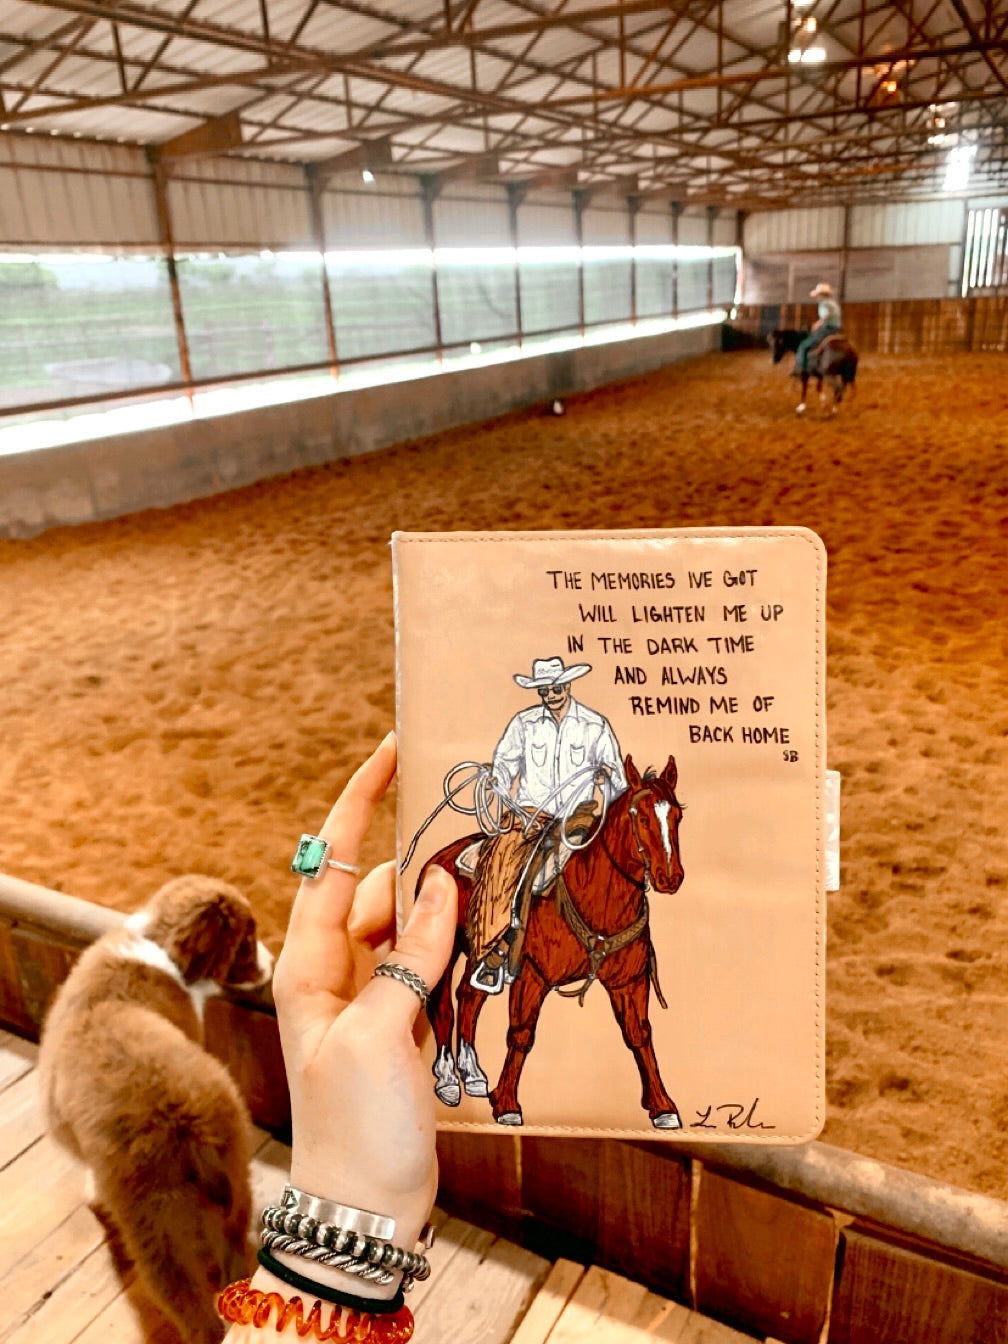 THE MEMORIES IVE GOT
WILL LIGHTEN ME UP
IN THE DARK TIME
AND ALWAYS
REMIND ME OF
BACK HOME
SB